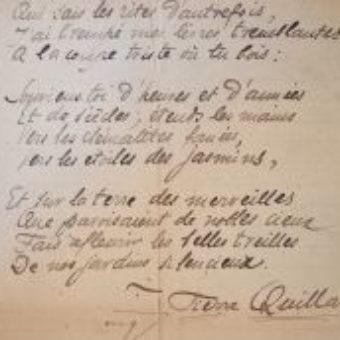 Qui sais les rites d'autrefois,
J'ai trempé mes lèvres tremblantes
A la coupe triste où tu bois :
Souviens-toi d'heures et d'années
Et de siècles ; étends les mains
Vers les clématites fanées,
Vers les étoiles des jasmins,
Et sur la terre des merveilles
Que pavoisaient de nobles cieux
Fais refleurir les belles treilles
De nos jardins silencieux.
Pierre Quilla